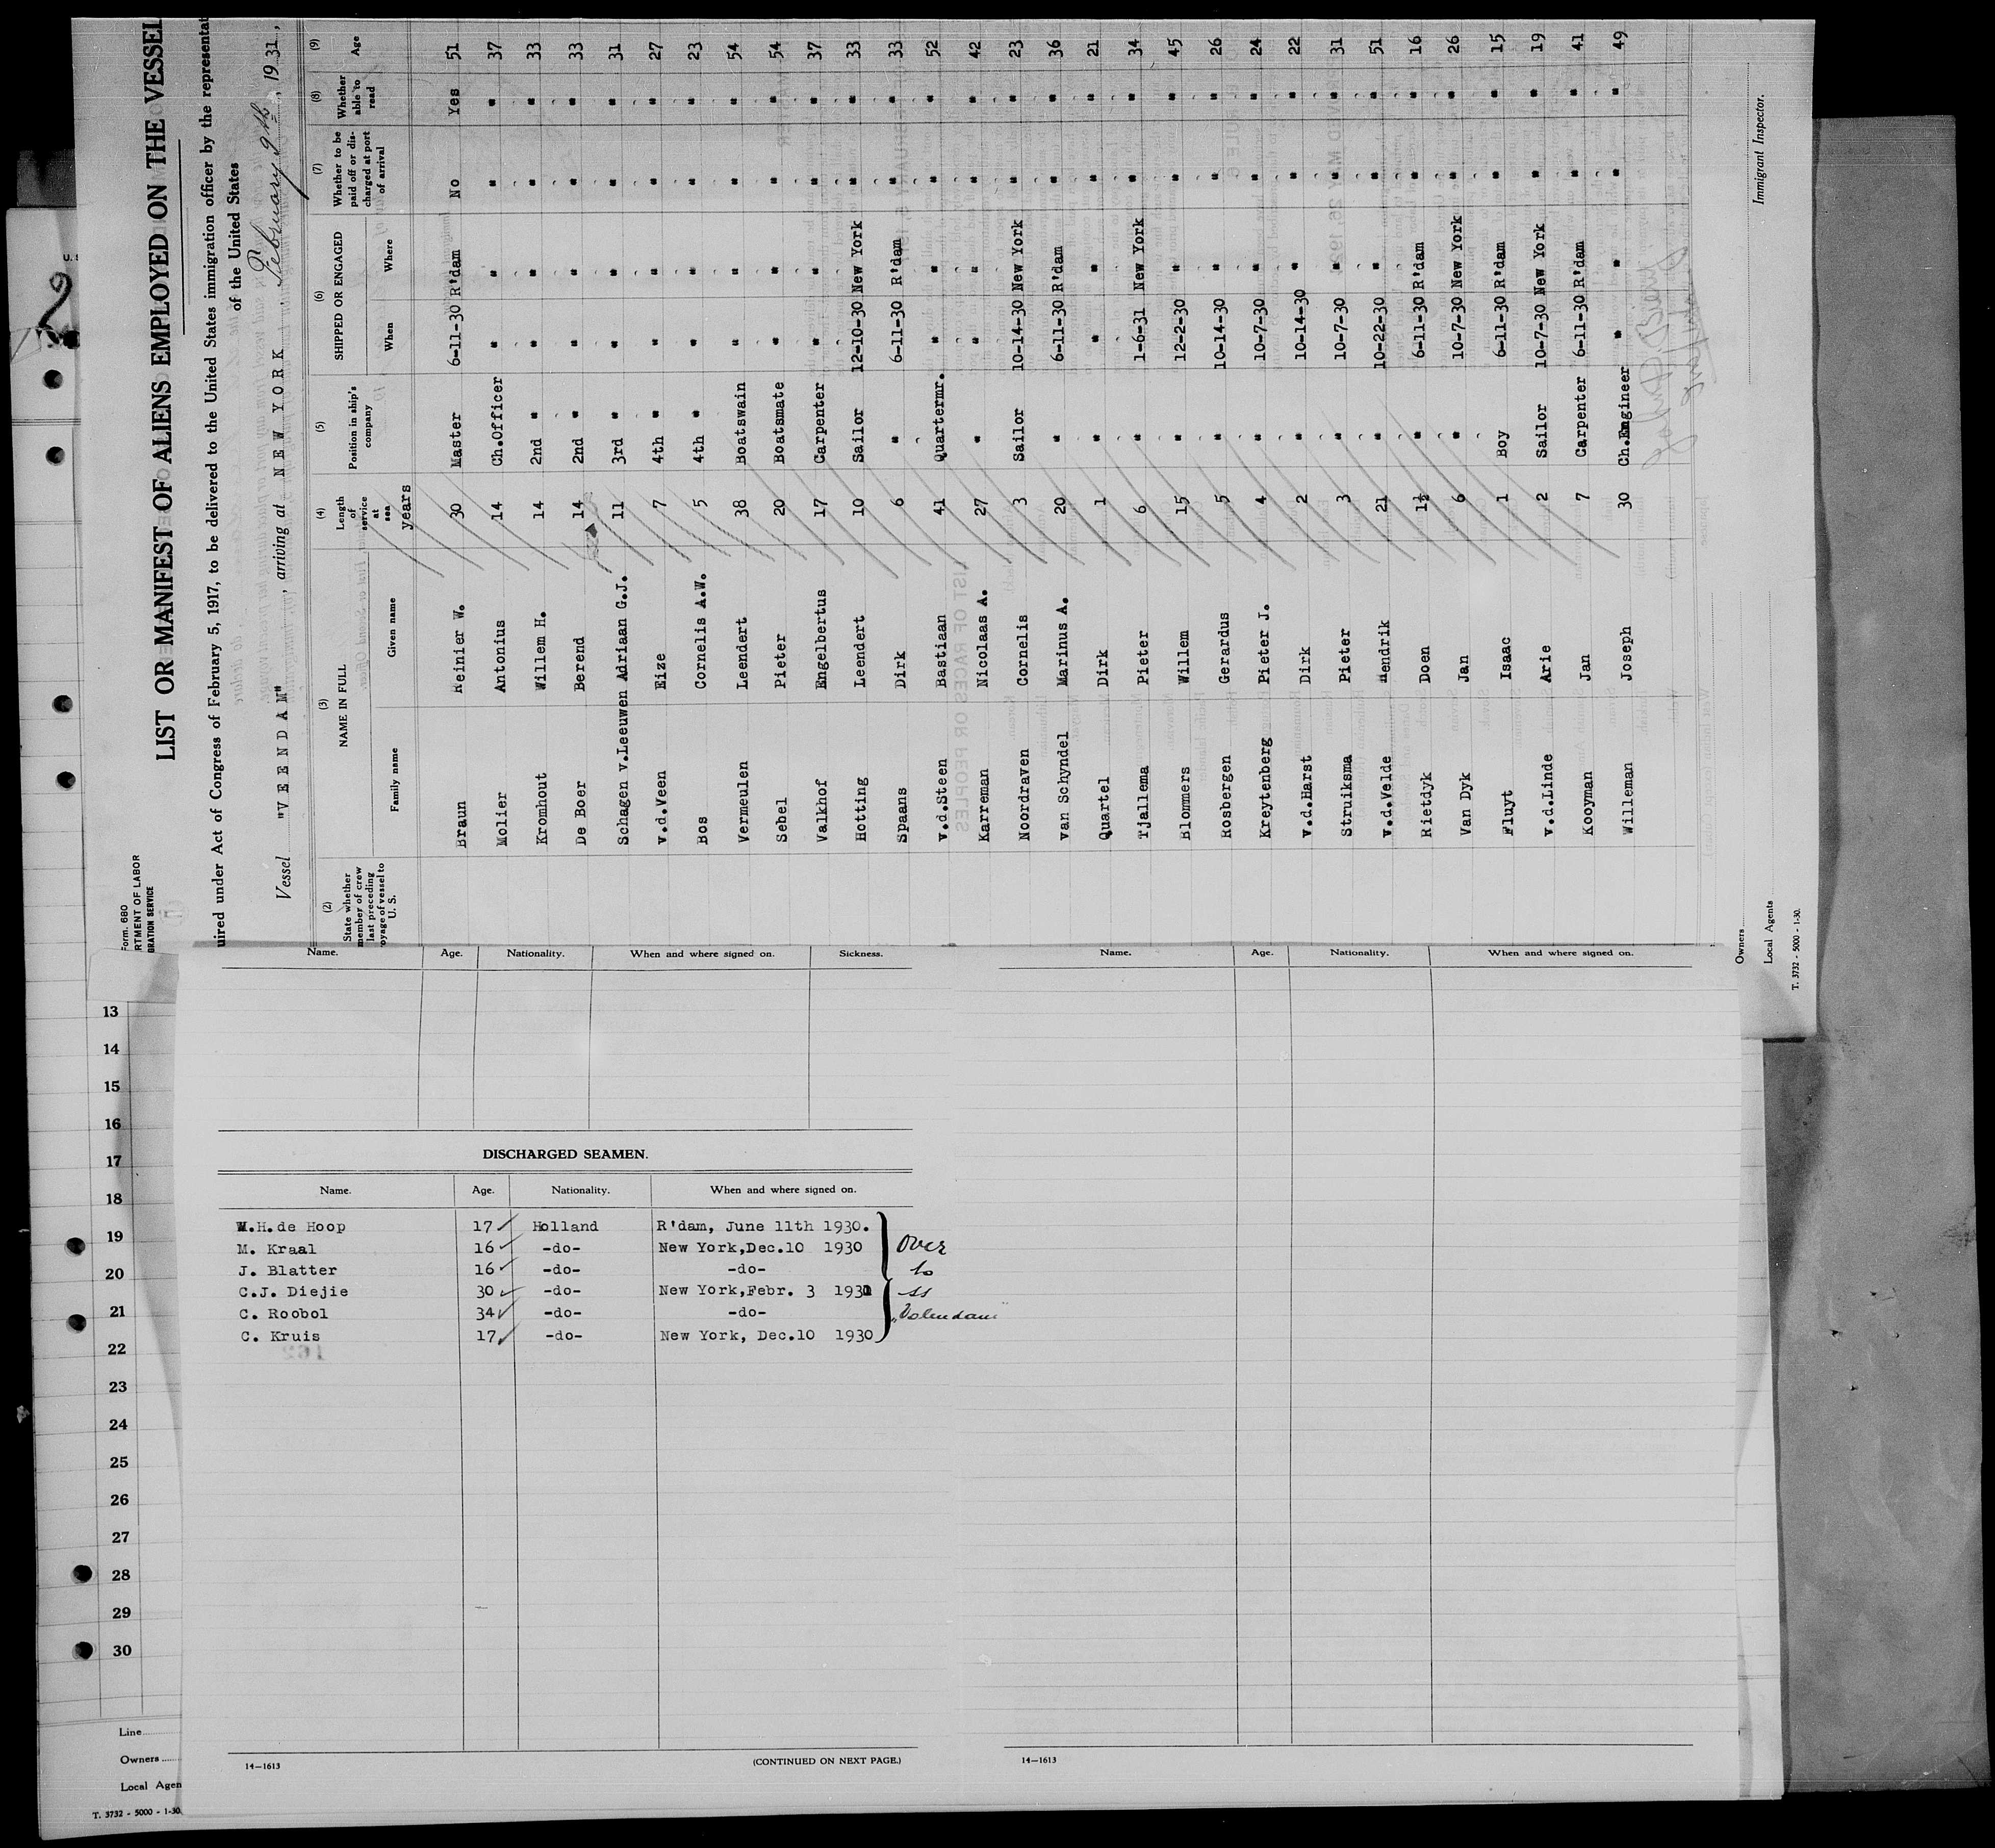 Form. 680
RTMENT OF LABOR
GRATION SERVICE
LIST OR MANIFEST OF ALIENS EMPLOYED ON THE VESSEL
uired under Act of Congress of February 5, 1917, to be delivered to the United States immigration officer by the representat
of the United States
Vessel "VEENDAM", arriving at NEW YORK February 9th, 1931,
(2) (3) (4) (5) (6) (7) (8) (9)
State whether member of crew last preceding oyage of vessel to U. S. NAME IN FULL Length of service at sea SHIPPED OR ENGAGED Position in ship's company Whether to be paid off or discharged at port of arrival Whether able to read Age
Family name Given name years When Where
Braun Reinier W. 30 Master 6-11-30 R'dam No Yes 51
Molier Antonius 14 Ch.Officer " " " " 37
Kromhout Willem H. 14 2nd " " " " " 33
De Boer Berend 14 2nd " " " " " 33
Schagen v.Leeuwen Adriaan G.J. 11 3rd " " " " " 31
v.d.Veen Eize 7 4th " " " " " 27
Bos Cornelis A.W. 5 4th " " " " " 23
Vermeulen Leendert 38 Boatswain " " " " 54
Sebel Pieter 20 Boatsmate " " " " 54
Valkhof Engelbertus 17 Carpenter " " " " 37
Hotting Leendert 10 Sailor 12-10-30 New York " " 33
Spaans Dirk 6 " 6-11-30 R'dam " " 33
v.d.Steen Bastiaan 41 Quartermr. " " " " 52
Karreman Nicolaas A. 27 " " " " " 42
Noordraven Cornelis 3 Sailor 10-14-30 New York " " 23
van Schyndel Marinus A. 20 " 6-11-30 R'dam " " 36
Quartel Dirk 1 " " " " " 21
Tjallema Pieter 6 " 1-6-31 New York " " 34
Blommers Willem 15 " 12-2-30 " " " 45
Rosbergen Gerardus 5 " 10-14-30 " " " 26
Kreytenberg Pieter J. 4 " 10-7-30 " " " 24
v.d.Harst Dirk 2 " 10-14-30 " " " 22
Struiksma Pieter 3 " 10-7-30 " " " 31
v.d.Velde Hendrik 21 " 10-22-30 " " " 51
Rietdyk Doen 1½ " 6-11-30 R'dam " " 16
Van Dyk Jan 6 " 10-7-30 New York " " 26
Fluyt Isaac 1 Boy 6-11-30 R'dam " " 15
v.d.Linde Arie 2 Sailor 10-7-30 New York " " 19
Kooyman Jan 7 Carpenter 6-11-30 R'dam " " 41
Willeman Joseph 30 Ch.Engineer " " " " 49
Immigrant Inspector.
Owners
Local Agents
T. 3732 - 5000 - 1-30.
LIST OF RACES OR PEOPLES
Name. Age. Nationality. When and where signed on. Sickness.
Name. Age. Nationality. When and where signed on.
DISCHARGED SEAMEN.
Name. Age. Nationality. When and where signed on.
W.H.de Hoop 17 Holland R'dam, June 11th 1930.
M. Kraal 16 -do- New York,Dec.10 1930
J. Blatter 16 -do- -do-
C.J. Diejie 30 -do- New York,Febr. 3 1931
C. Roobol 34 -do- -do-
C. Kruis 17 -do- New York, Dec.10 1930
Over
to
ss
"Volendam"
162
14—1613
(CONTINUED ON NEXT PAGE.)
14—1613
13
14
15
16
17
18
19
20
21
22
23
24
25
26
27
28
29
30
Line
Owners
Local Agen
T. 3732 - 5000 - 1-30.